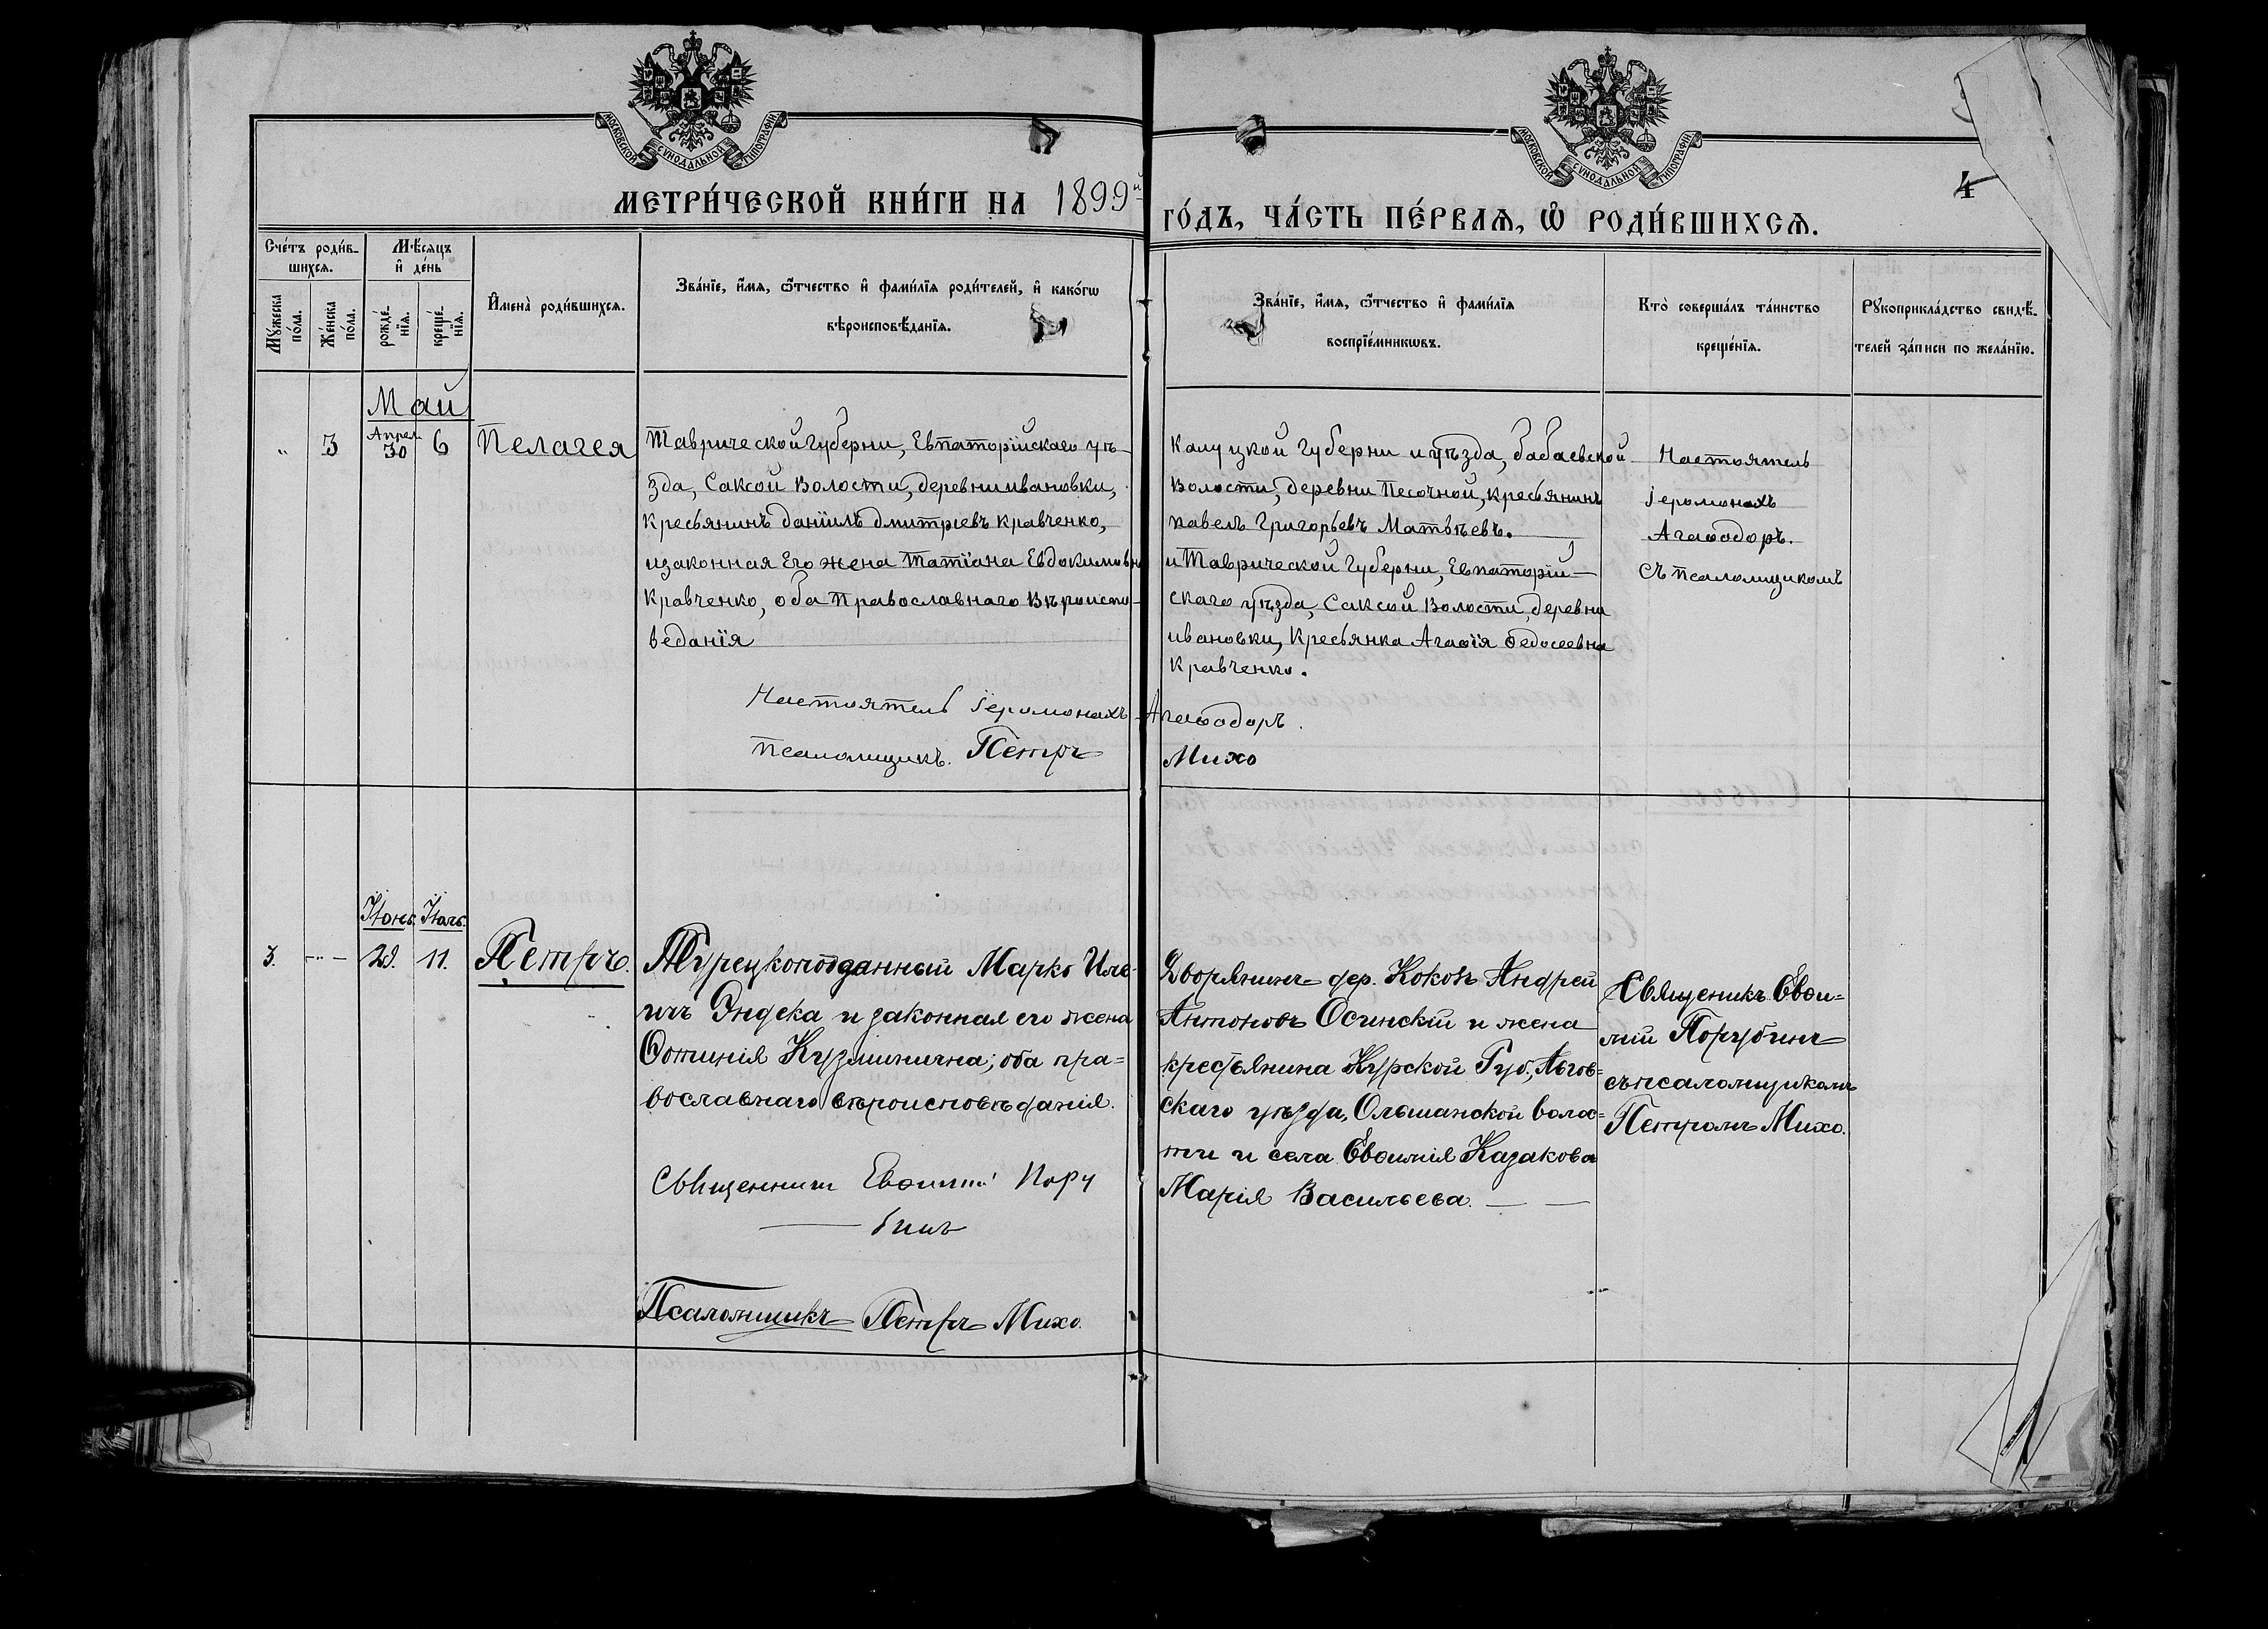 МОСКОВСКОЙ СѴНОДАЛЬНОЙ ТИПОГРАФІИ
МОСКОВСКОЙ СѴНОДАЛЬНОЙ ТИПОГРАФІИ
4
МЕТРИ́ЧЕСКОЙ КНИ́ГИ НА 1899й ГО́ДЪ, ЧА́СТЬ ПЕ́РВАѦ, Ѡ҆ РОДИ́ВШИХСѦ.
Сче́тъ роди́в-
шихсѧ.
Мꙋжеска
по́ла.
Же́нска
по́ла.
Мѣ́сѧцъ
и҆ де́нь
рожде́-
нїѧ.
креще́-
нїѧ.
И҆мена̀ роди́вшихсѧ.
Зва́нїе, и҆́мѧ, ѻ҆́тчество и҆ фами́лїѧ роди́телей, и҆ како́гѡ
вѣроисповѣ́данїѧ.
Зва́нїе, и҆́мѧ, ѻ҆́тчество и҆ фами́лїѧ
воспрїе́мникѡвъ.
Кто̀ соверша́лъ та́инство
креще́нїѧ.
Рꙋкоприкла́дство свидѣ́-
телей за́писи по жела́нїю.
Май
„ 3 Апрел. 30 6 Пелагея
Таврической Губерни, Евпаторійскаго уѣ-
зда, Саксой Волости, деревни ивановки,
Кресьянинъ данїилъ дмитріевъ Кравченко,
изаконная Его жена Татїана Евдокимовна
Кравченко, оба Православнаго Вѣроиспо-
веданїя
Настоятель іеромонахъ Агаѳодоръ.
Псаломщикъ. Петръ Михо
Калуцкой Губерни и уѣзда, бабаевской
Волости, деревни Песочной, кресьянинъ
павелъ Григорьевъ Матвѣевъ.
и Таврической Губерни, Евпаторій-
скаго уѣзда, Саксой Волости, деревни
ивановки, Кресьянка Агаѳія Ѳедосеевна
Кравченко.
Настоятель
іеромонахъ
Агаѳодоръ.
Съ псаломщикомъ
Іюнь. Іюль.
3. -„- 29. 11. Петръ.
Турецкоподданный Марко Иль-
ичъ Эндека и законная его жена
Фотинія Кузминична; оба пра=
вославнаго вѣроисповѣданія.
Священникъ Евѳимій Пору
бинъ
Псаломщикъ Петръ Михо.
Дворянинъ дер. Кокозъ Андрей
Антоновъ Осинскій и жена
крестьянина Курской Губ., Льгов=
скаго уѣзда, Ольшанской волос=
ти и села Евѳимія Казакова
Марія Васильева.
Священикъ Евѳи=
мій Порубинъ
съ псаломщикомъ
Петромъ Михо.